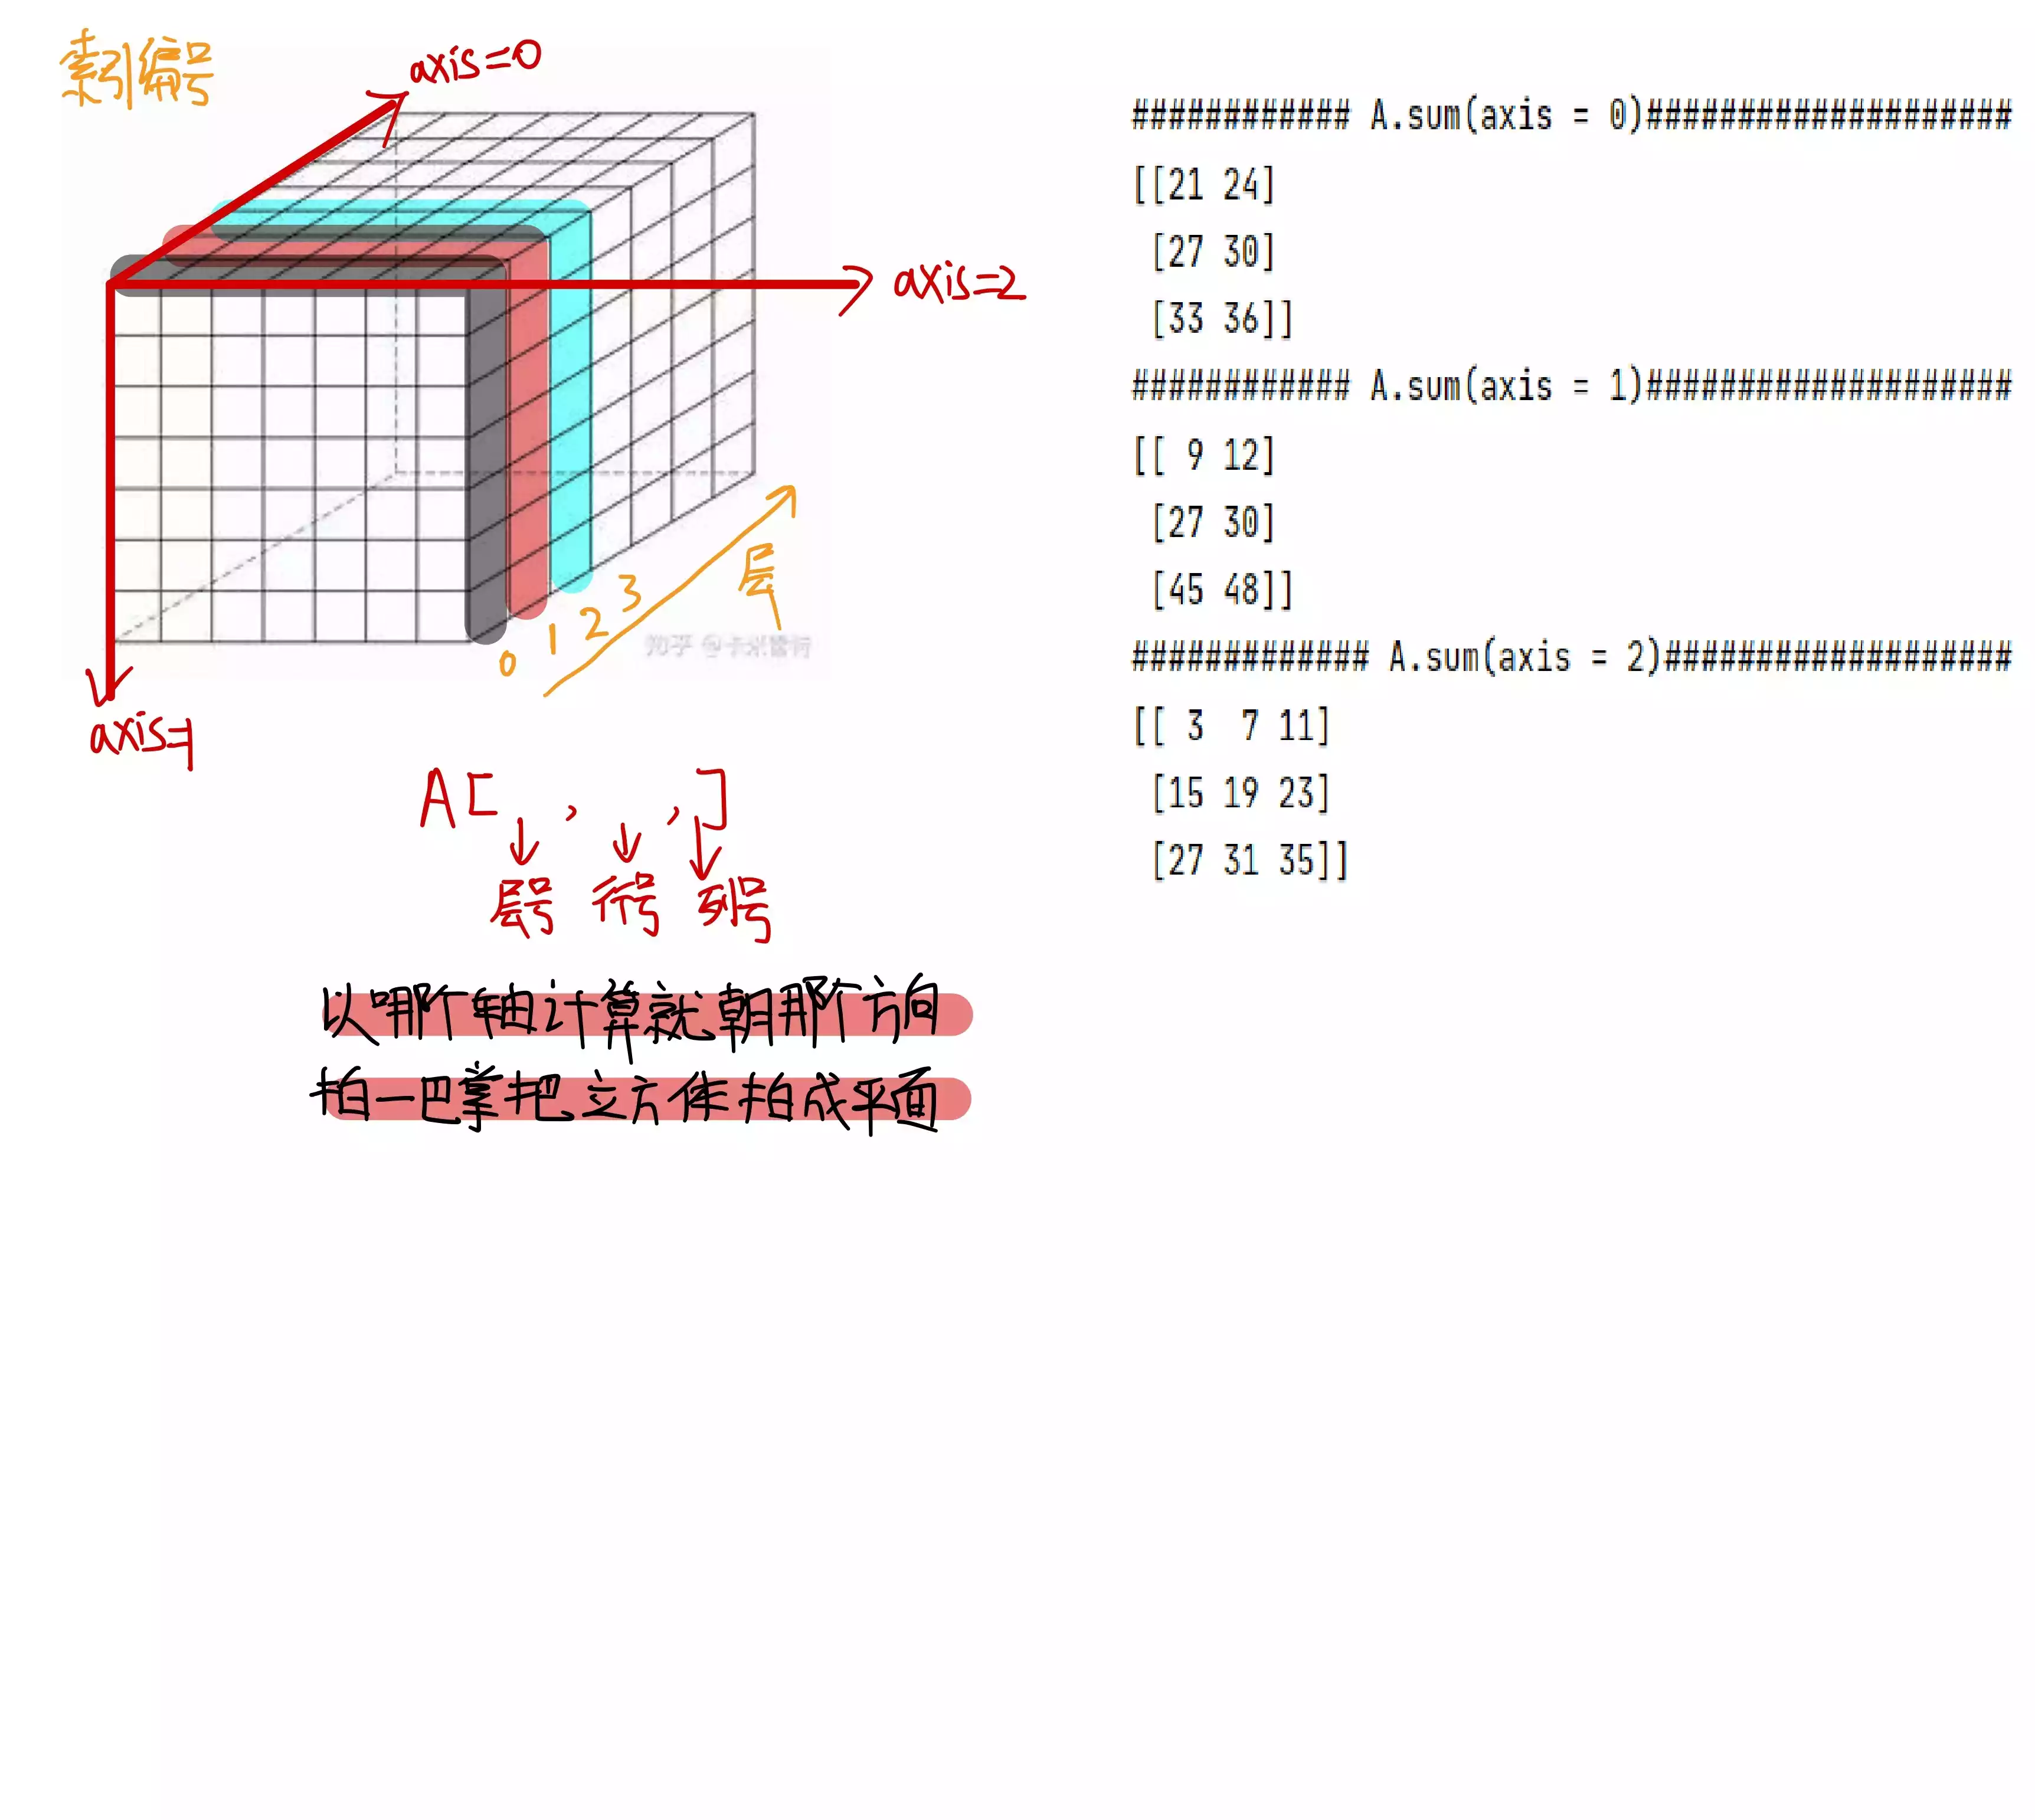 索引编号
axis=0
axis=2
0 1 2 3
层
知乎
axis=1
A[ , , ]
层号 行号 列号
以哪个轴计算就朝那个方向
拍一巴掌把立方体拍成平面
############ A.sum(axis = 0)####################
[[21 24]
[27 30]
[33 36]]
############ A.sum(axis = 1)####################
[[ 9 12]
[27 30]
[45 48]]
############# A.sum(axis = 2)###################
[[ 3  7 11]
[15 19 23]
[27 31 35]]